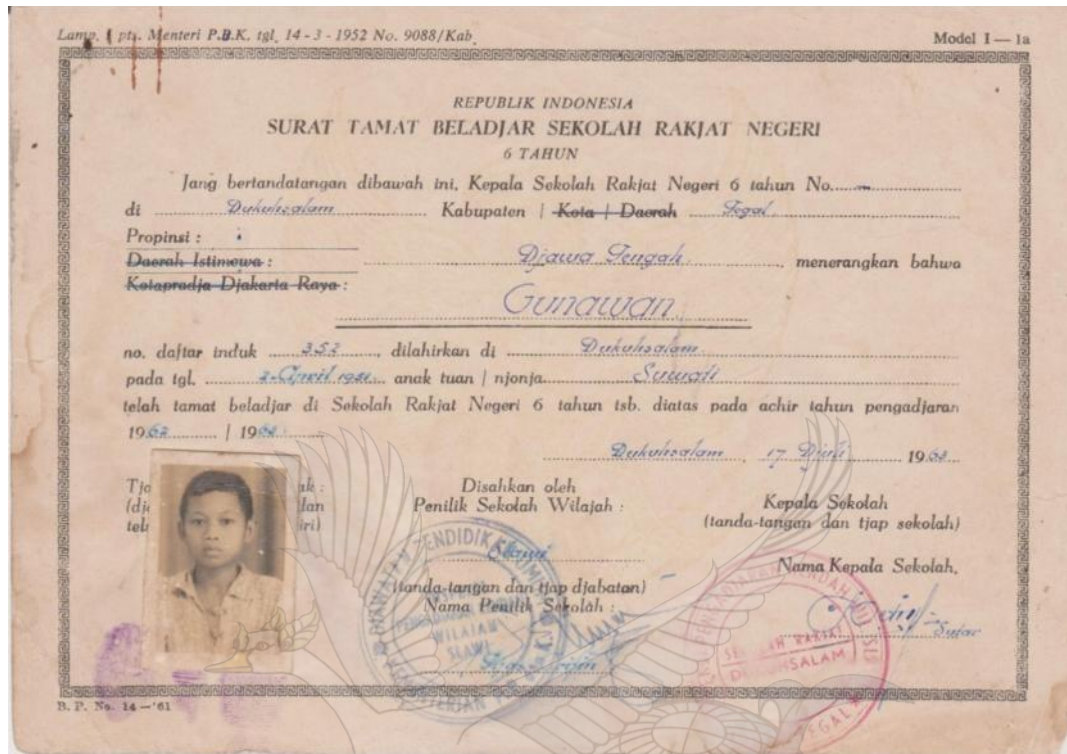 Lamp. I pts. Menteri P.B.K. tgl. 14 - 3 - 1952 No. 9088/Kab.
Model I — 1a
REPUBLIK INDONESIA
SURAT TAMAT BELADJAR SEKOLAH RAKJAT NEGERI
6 TAHUN
Jang bertandatangan dibawah ini, Kepala Sekolah Rakjat Negeri 6 tahun No. —
di Dukuhsalam Kabupaten | Kota | Daerah Tegal.
Propinsi :
Daerah Istimewa : Djawa Tengah menerangkan bahwa
Kotapradja Djakarta Raya :
Gunawan
no. daftar induk 352, dilahirkan di Dukuhsalam
pada tgl. 2-April 1951 anak tuan | njonja Suwati
telah tamat beladjar di Sekolah Rakjat Negeri 6 tahun tsb. diatas pada achir tahun pengadjaran
1962 | 1963
Dukuhsalam 17 Djuni 1963
Disahkan oleh
Penilik Sekolah Wilajah :
Slawi
(tanda-tangan dan tjap djabatan)
Nama Penilik Sekolah :
Kepala Sekolah
(tanda-tangan dan tjap sekolah)
Nama Kepala Sekolah,
WILAJAH
SLAWI
SEKOLAH RAKJAT
DUKUHSALAM
B. P. No. 14 — '61